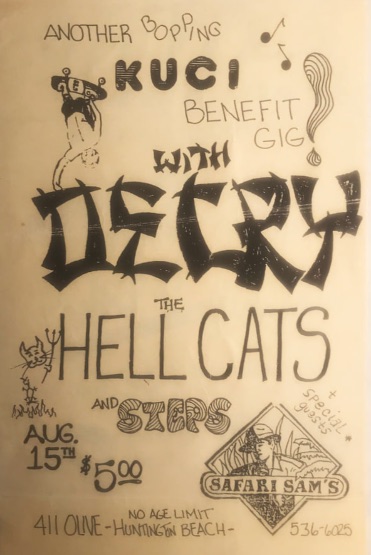 ANOTHER BOPPING
KUCI
BENEFIT
GIG
WITH
DECRY
THE
HELL CATS
AND STEPS
+ special guests
AUG.
15TH $5.00
SAFARI SAM'S
NO AGE LIMIT
411 OLIVE - HUNTINGTON BEACH - 536-6025